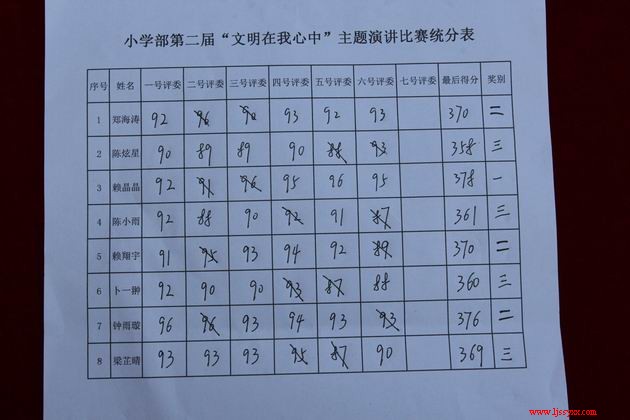 小学部第二届“文明在我心中”主题演讲比赛统分表
序号 姓名 一号评委 二号评委 三号评委 四号评委 五号评委 六号评委 七号评委 最后得分 奖别
1 郑海涛 92 96 90 93 92 93 370 二
2 陈炫星 90 89 89 90 88 93 358 三
3 赖晶晶 92 91 96 95 96 95 378 一
4 陈小雨 92 88 90 92 91 87 361 三
5 赖翔宇 91 95 93 94 92 89 370 二
6 卜一翀 92 90 90 93 87 88 360 三
7 钟雨璇 96 96 93 94 93 93 376 二
8 梁芷晴 93 93 93 95 87 90 369 三
www.ljssyxx.com